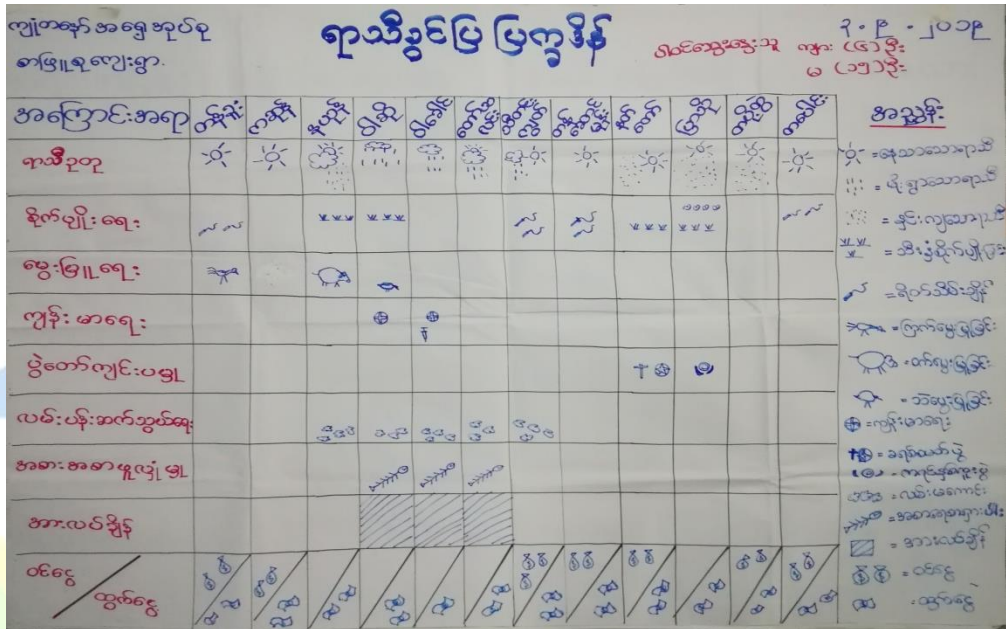 ကျုံတနော် အရှေ့အုပ်စု
စာဖြူစုကျေးရွာ.
ရာသီခွင်ပြ ပြက္ခဒိန်
၃ - ၉ - ၂၀၁၉
ပါဝင်ဆွေးနွေးသူ ကျား (၄)ဦး
မ (၁၅)ဦး
အကြောင်းအရာ တန်ခူး ကဆုန် နယုန် ဝါဆို ဝါခေါင် တော်သလင်း သီတင်းကျွတ် တန်ဆောင်မုန်း နတ်တော် ပြာသို တပို့တွဲ တပေါင်း
ရာသီဥတု
စိုက်ပျိုးရေး
မွေးမြူရေး
ကျန်းမာရေး
ပွဲတော်ကျင်းပမှု
လမ်းပန်းဆက်သွယ်ရေး
အားလပ်ချိန်
ဝင်ငွေ
ထွက်ငွေ
အညွှန်း
=နေသာသောရာသီ
= မိုးရွာသောရာသီ
= နှင်းကျသောရာသီ
= သီးနှံစိုက်ပျိုးခြင်း
=ရိတ်သိမ်းချိန်
=ကြက်မွေးမြူခြင်း
=ဝက်မွေးမြူခြင်း
= ဘဲမွေးမြူခြင်း
=ကျန်းမာရေး
=ခရစ်စမတ်ပွဲ
=ကရင်နှစ်သစ်ကူးပွဲ
= လမ်းမကောင်း
=အစားအစာရှားပါး
= အားလပ်ချိန်
= ဝင်ငွေ
= ထွက်ငွေ